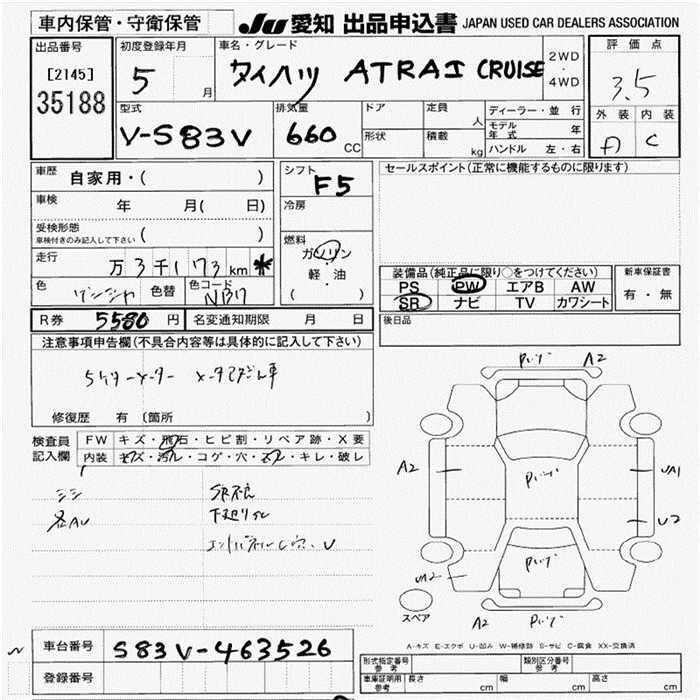 車内保管・守衛保管 JU 愛知 出品申込書 JAPAN USED CAR DEALERS ASSOCIATION
出品番号 初度登録年月 車名・グレード 評価点
[2145] 5 月 ダイハツ ATRAI CRUISE 2WD・4WD 3.5
35188 型式 排気量 ドア 定員 人 ディーラー・並行 外装 内装
V-S83V 660 CC 形状 積載 kg モデル年式 年 A C
ハンドル 左・右
車歴 自家用・( ) シフト F5 セールスポイント(正常に機能するものに限ります)
車検 年 月( 日) 冷房
受検形態 ( )
車検付きのみ記入して下さい
燃料 ガソリン
走行 万3千173km * 軽・油
( )
装備品(純正品に限り○をつけてください) 新車保証書
色 色替 色コード PS PW エアB AW 有・無
SR ナビ TV カワシート
R券 5580 円 名変通知期限 月 日 後日品
注意事項申告欄(不具合内容等は具体的に記入して下さい)
修復歴 有 〔箇所
検査員 FW キズ・飛石・ヒビ割・リペア跡・X要
記入欄 内装 キズ・汚れ・コゲ・穴・スレ・キレ・破レ
A2
A2 UA1
U2
UA2
スペア
A2
A-キズ E-エクボ U-凹み W-補修跡 S-サビ C-腐食 XX-交換済
車台番号 S83V-463526
登録番号
形式指定番号 参考 類別区分番号 参考
車庫証明用 参考 長さ cm 幅 cm 高さ cm